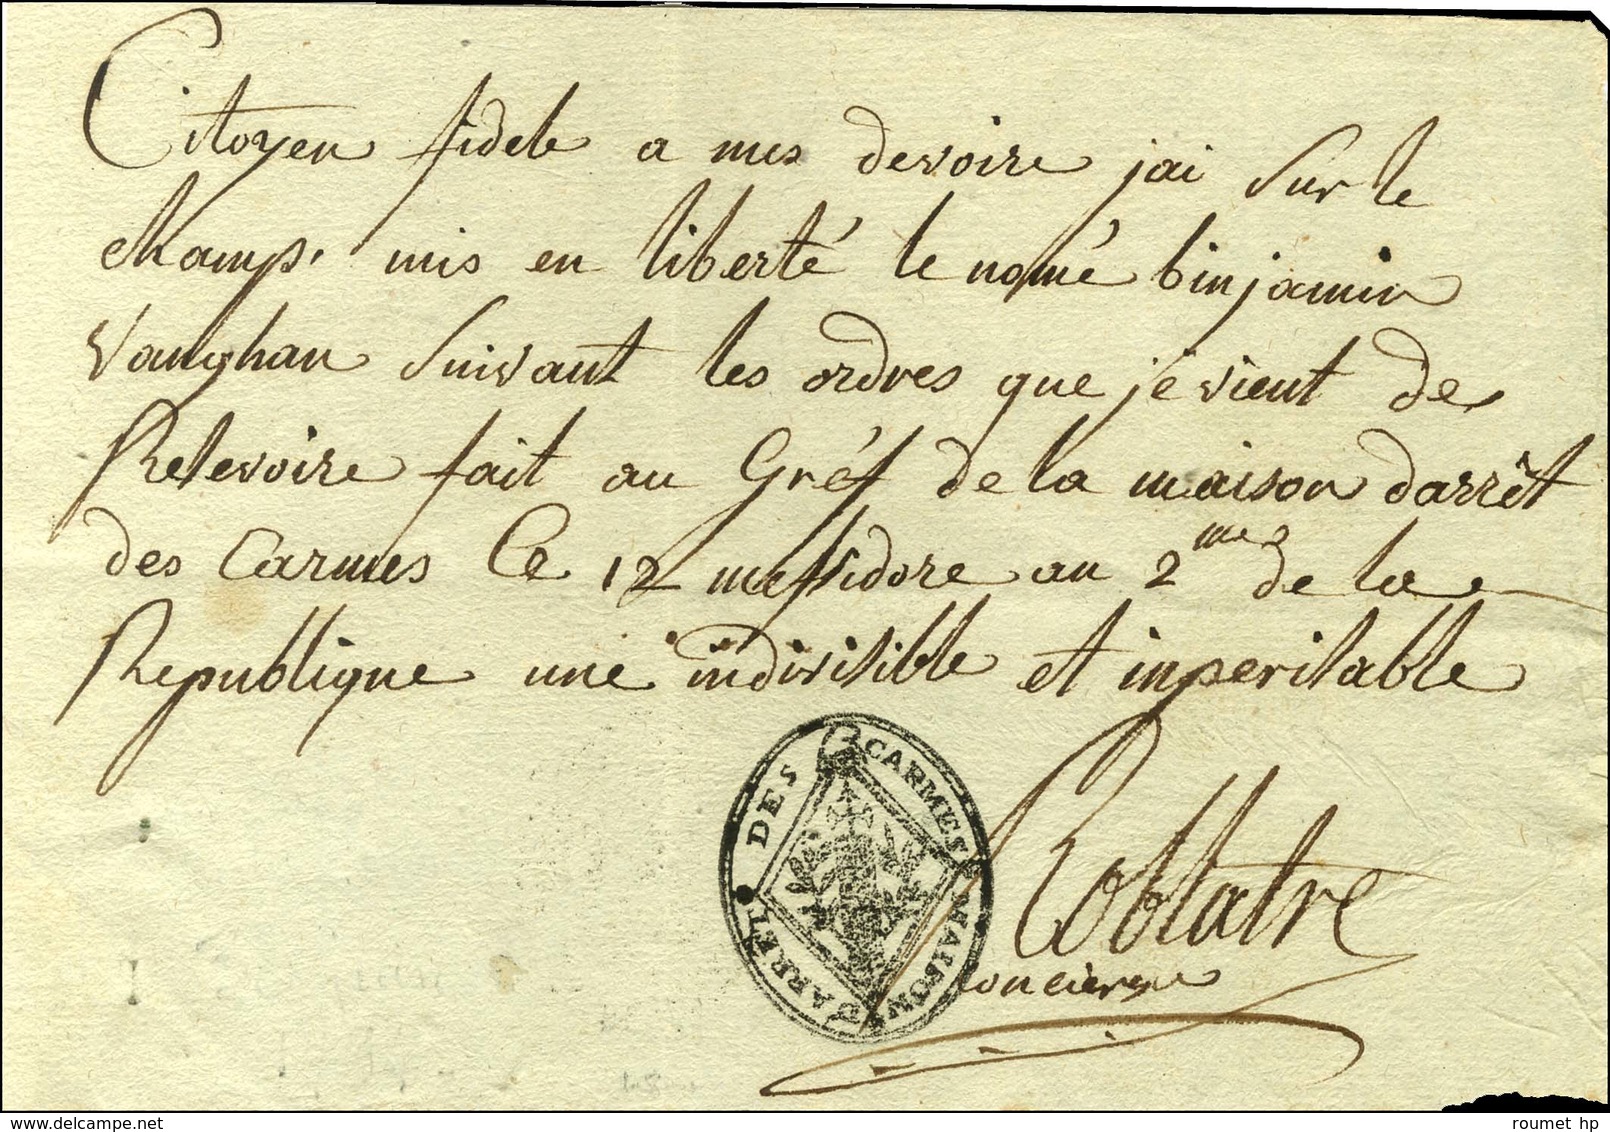 Citoyen fidele a mes devoire jai sur le
champ. mis en liberté le nomé binjamin
Vaughan suivant les ordres que je vient de
Relevoire fait au Gréf de la maison darrêt
des Carmes Ce 12 messidore an 2me de la
Republique une indivisible et inperilable
MAISON D'ARRET DES CARMES
Roblatre
concierge
roumet hp